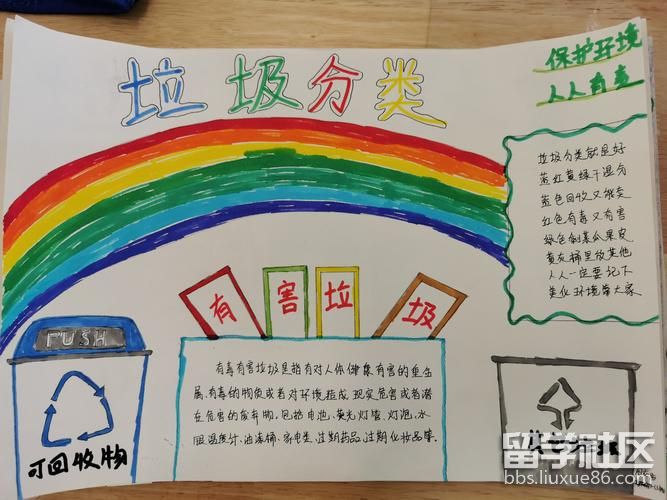 垃圾分类
保护环境
人人有责
垃圾分类就是好
蓝红黄绿干湿分
蓝色回收又能卖
红色有毒又有害
绿色剩菜瓜果皮
黄灰桶里放其他
人人一定要记下
美化环境靠大家
有害垃圾
有毒有害垃圾是指有对人体健康有害的重金
属、有毒的物质或者对环境造成现实危害或者潜
在危害的废弃物。包括电池、荧光灯管、灯泡、水
银温度计、油漆桶、家电类、过期药品、过期化妆品等。
PUSH
可回收物
留学社区
bbs.liuxue86.com